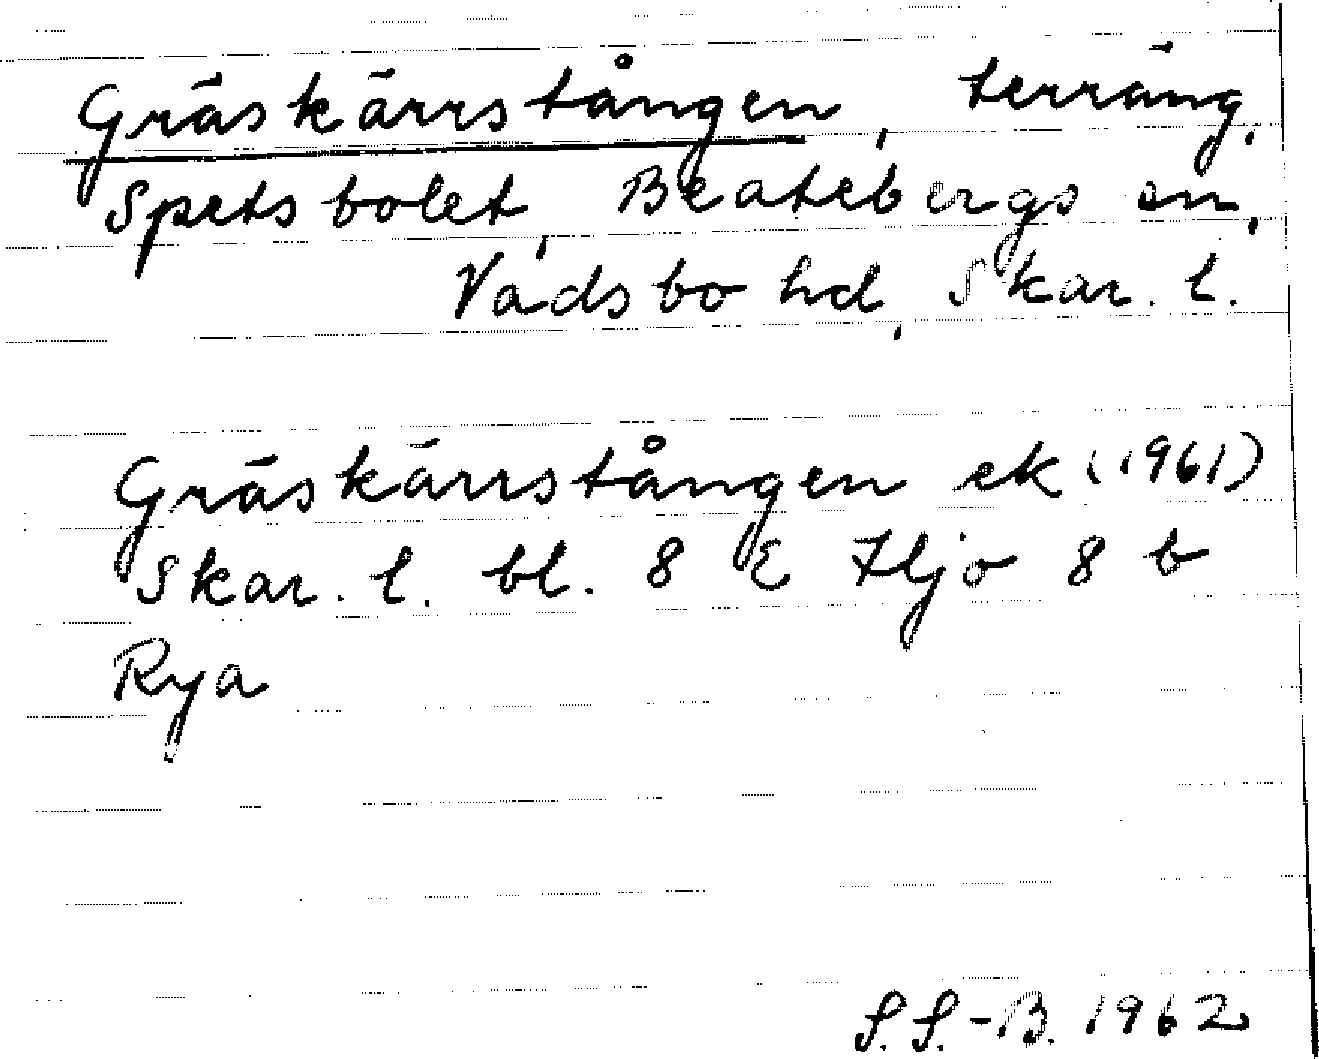 Gräskärrstången, terräng.
Spetsbolet, Beatebergs sn,
Vadsbo hd, Skar. l.
Gräskärrstången ek (1961)
Skar. l. bl. 8 E Hjo 8 b
Rya
S. S.-B. 1962